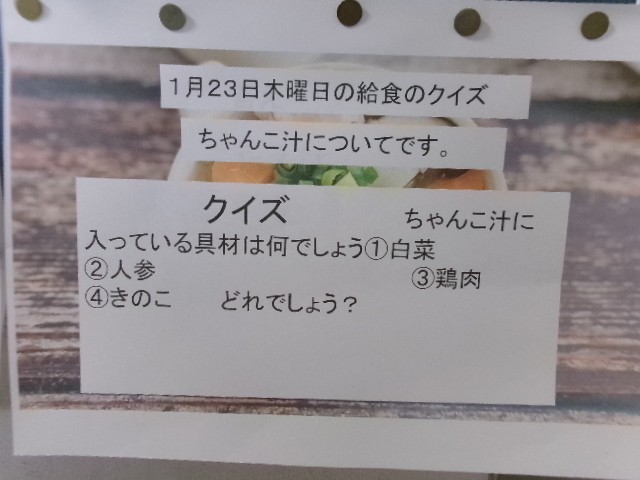 1月23日木曜日の給食のクイズ
ちゃんこ汁についてです。
クイズ ちゃんこ汁に
入っている具材は何でしょう①白菜
②人参 ③鶏肉
④きのこ どれでしょう？